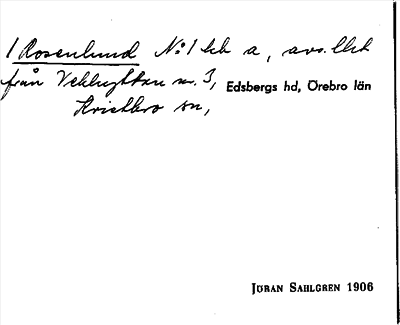 1 Rosenlund No: 1 litt a, avs. lht
från Vekhyttan nr. 3, Edsbergs hd, Örebro län
Kvistbro sn,
JÖRAN SAHLGREN 1906